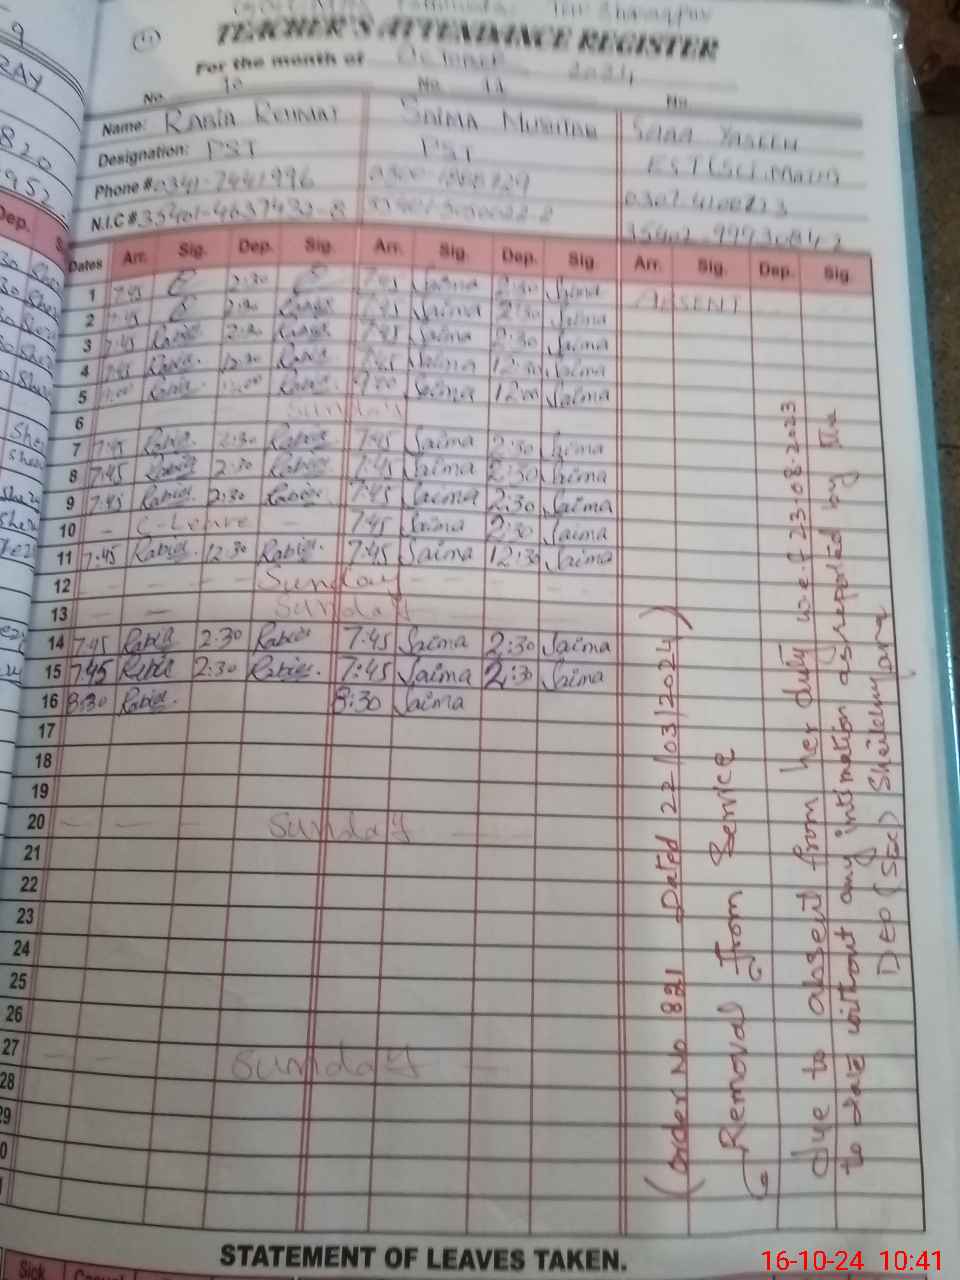 TEACHER'S ATTENDANCE REGISTER
For the month of October 2024
No. 10 No. 11 No.
Name: RABIA REHMAT SAIMA MUSHTAQ SANA YASEEN
Designation: PST PST EST (Sci.Math)
Phone # 0341-7441996
N.I.C #
Dates Arr. Sig. Dep. Sig. Arr. Sig. Dep. Sig. Arr. Sig. Dep. Sig.
1 7:45 2:30 7:45 Saima 2:30 Saima ABSENT
2 7:45 2:30 Rabia 7:45 Saima 2:30 Saima
3 7:45 Rabia 2:30 Rabia 7:45 Saima 2:30 Saima
4 7:45 Rabia 12:30 Rabia 7:45 Saima 12:30 Saima
5 Rabia Rabia 9:00 Saima 12:00 Saima
6 Sunday
7 7:45 Rabia 2:30 Rabia 7:45 Saima 2:30 Saima
8 7:45 Rabia 2:30 Rabia 7:45 Saima 2:30 Saima
9 7:45 Rabia 2:30 Rabia 7:45 Saima 2:30 Saima
10 - C-Leave - 7:45 Saima 2:30 Saima
11 7:45 Rabia 12:30 Rabia 7:45 Saima 12:30 Saima
12 Sunday
13 Sunday
14 7:45 Rabia 2:30 Rabia 7:45 Saima 2:30 Saima
15 7:45 Rabia 2:30 Rabia 7:45 Saima 2:30 Saima
16 8:30 Rabia 8:30 Saima
17
18
19
20 Sunday
21
22
23
24
25
26
27 Sunday
28
29
(Order No 821 Dated 22/03/2024)
Removal from Service
due to absent from her duty w.e.f 23.08.2023
to date without any intimation as reported by the
DEO (SEC) Sheikhupura
STATEMENT OF LEAVES TAKEN.
Sick Casual
16-10-24 10:41